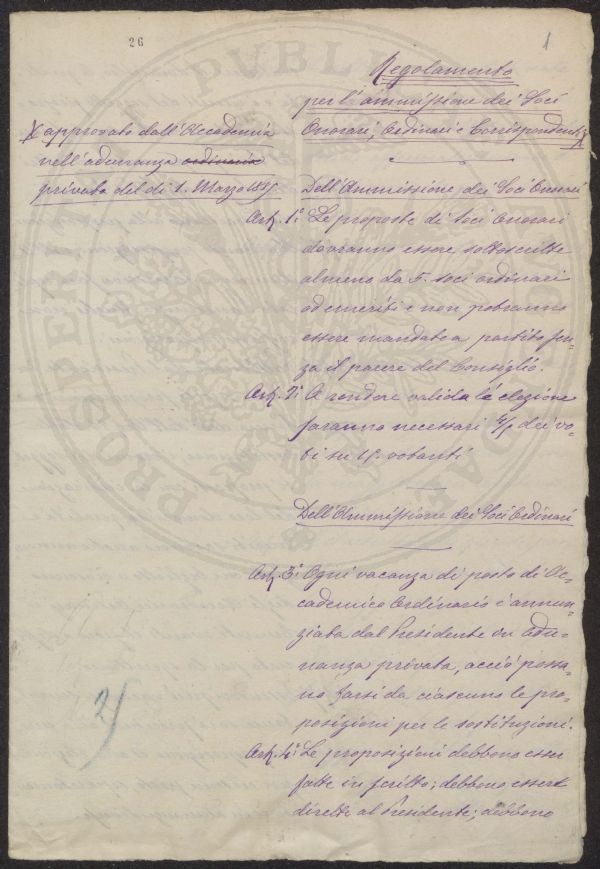 26
1
Regolamento
per l'ammissione dei Soci
Onorari, Ordinari e Corrispondenti X
X approvato dall'Accademia
nell'adunanza ordinaria
privata del dì 1. Marzo 1885
Dell'Ammissione dei Soci Onorari
Art. 1° Le proposte di Soci Onorari
dovranno essere sottoscritte
almeno da 5. soci ordinari
od emeriti e non potranno
essere mandate a partito sen-
za il parere del Consiglio.
Art. 2° A rendere valida la elezione
saranno necessari dei vo-
ti su votanti
Dell'Ammissione dei Soci Ordinari
Art. 3° Ogni vacanza di posto di Ac-
cademico Ordinario è annun-
ziata dal Presidente in Adu-
nanza privata, acciò possa-
no farsi da ciascuno le pro-
posizioni per le sostituzioni.
Art. 4° Le proposizioni debbono esser
fatte in scritto; debbono essere
dirette al Presidente; debbono